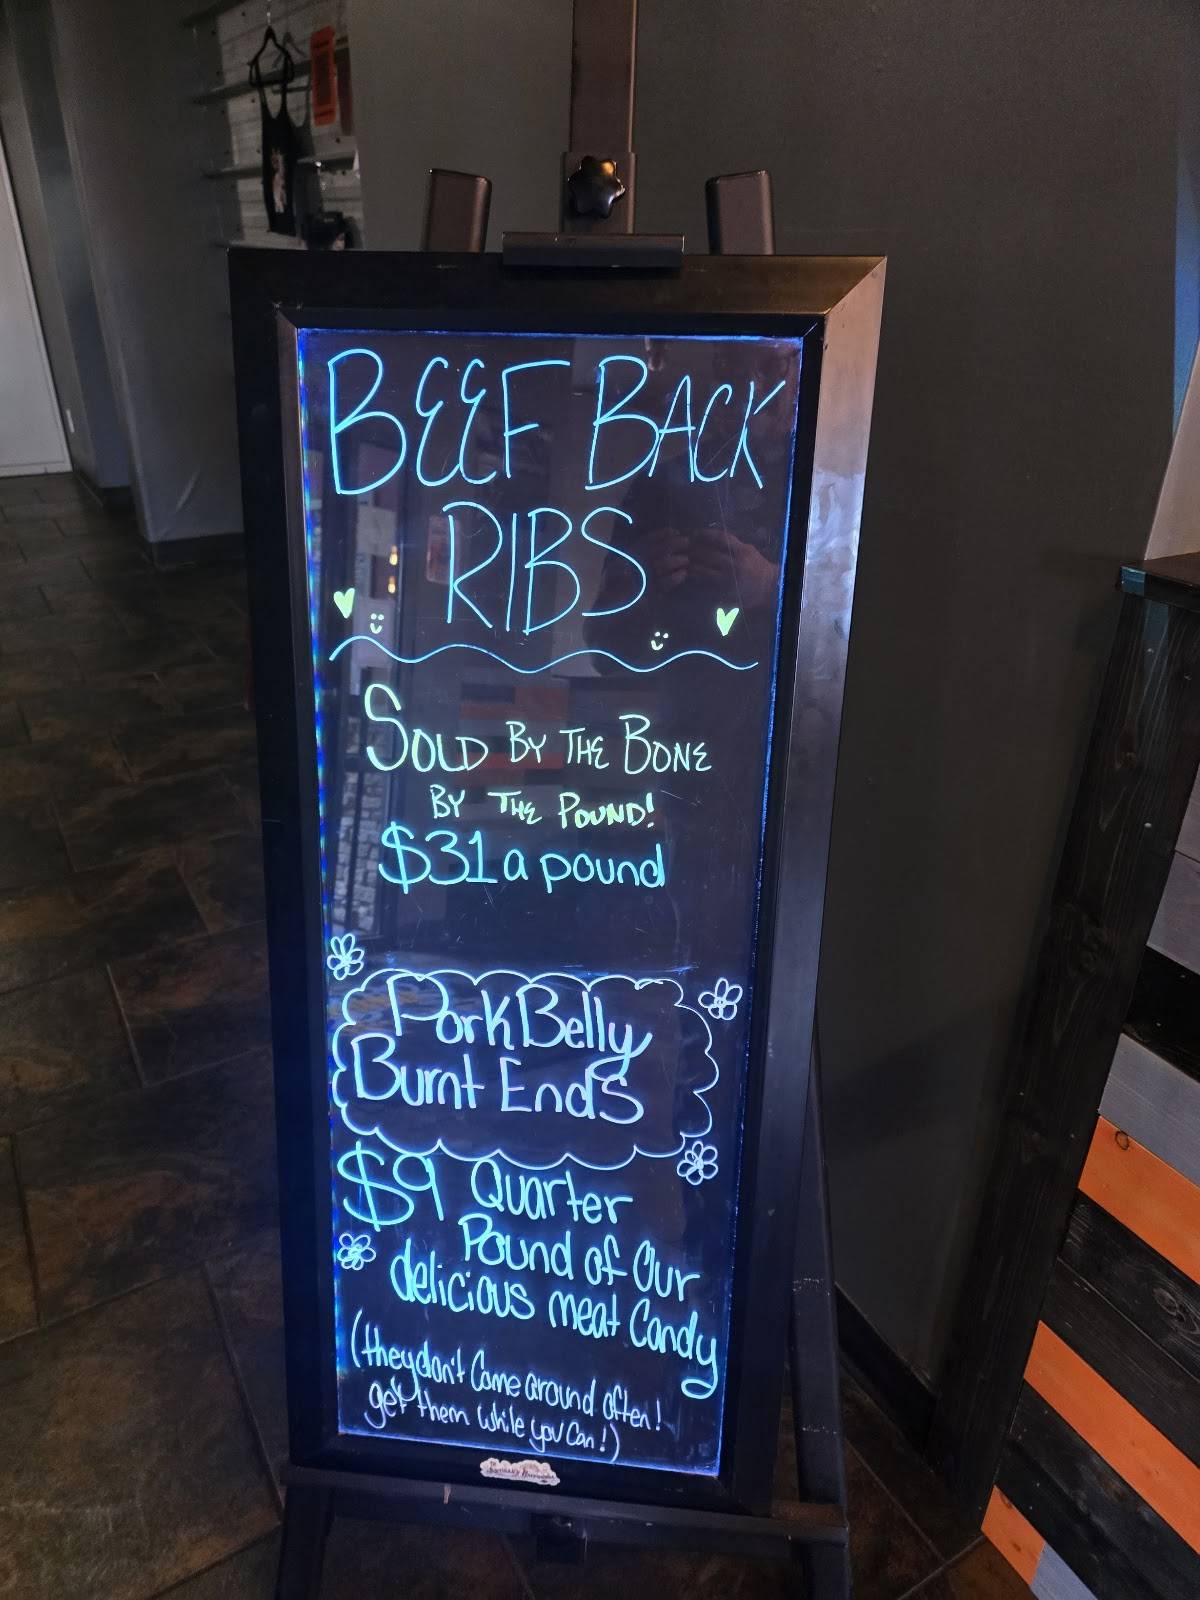 BEEF BACK
RIBS
SOLD BY THE BONE
BY THE POUND!
$31 a pound
Pork Belly
Burnt Ends
$9 Quarter
Pound of Our
delicious meat Candy
(they don't Come around often!
get them while you Can!)